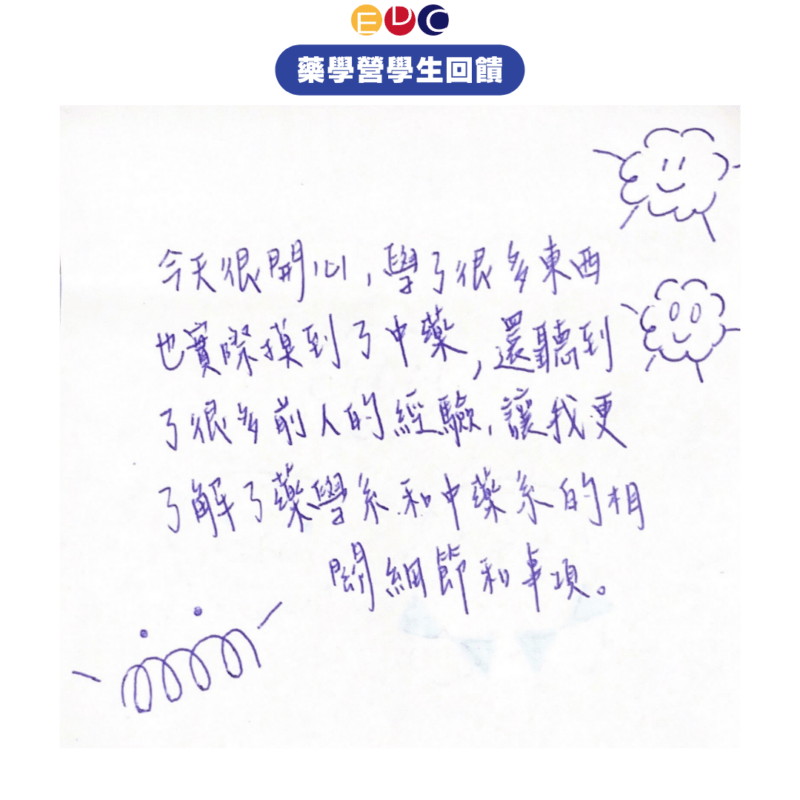 EDC
藥學營學生回饋
今天很開心，學了很多東西
也實際摸到了中藥，還聽到
了很多前人的經驗，讓我更
了解了藥學系和中藥系的相
關細節和事項。